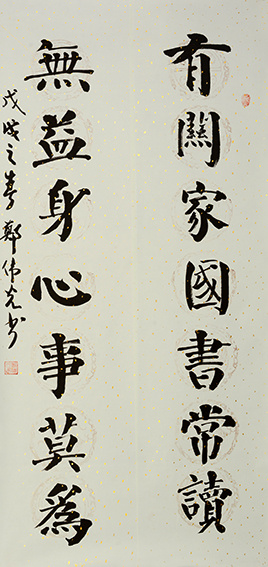 有關家國書常讀
無益身心事莫為
戊戌之春鄭偉光书